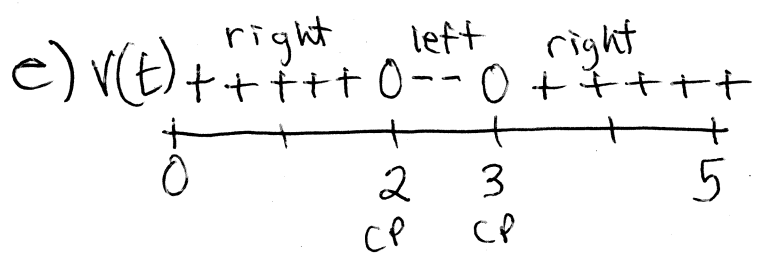 right left right
e) v(t) + + + + + 0 - - 0 + + + + +
0 2 3 5
CP CP